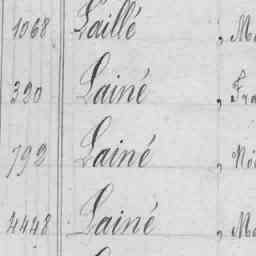 1068 Laillé , M
320 Lainé , Fra
792 Lainé , Noë
4448 Lainé , M